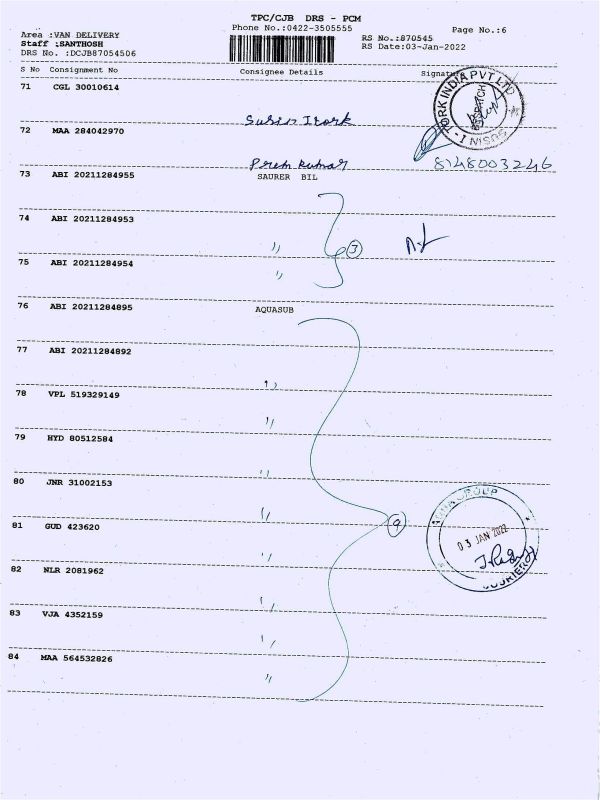 TPC/CJB DRS - PCM
Phone No.:0422-3505555
Page No.:6
Area :VAN DELIVERY
RS No.:870545
Staff :SANTHOSH
RS Date:03-Jan-2022
DRS No. :DCJB87054506
S No Consignment No Consignee Details Signature
71 CGL 30010614
Susin Itork
72 MAA 284042970
Prem Kumar
8148003246
73 ABI 20211284955 SAURER BIL
74 ABI 20211284953 〃
3
75 ABI 20211284954 〃
76 ABI 20211284895 AQUASUB
77 ABI 20211284892 〃
78 VPL 519329149 〃
79 HYD 80512584 〃
80 JNR 31002153 〃
81 GUD 423620 〃
9
82 NLR 2081962 〃
83 VJA 4352159 〃
84 MAA 564532826 〃
TORK INDIA PVT LTD
DESPATCH
SUSIN
GROUP
03 JAN 2022
COURIER